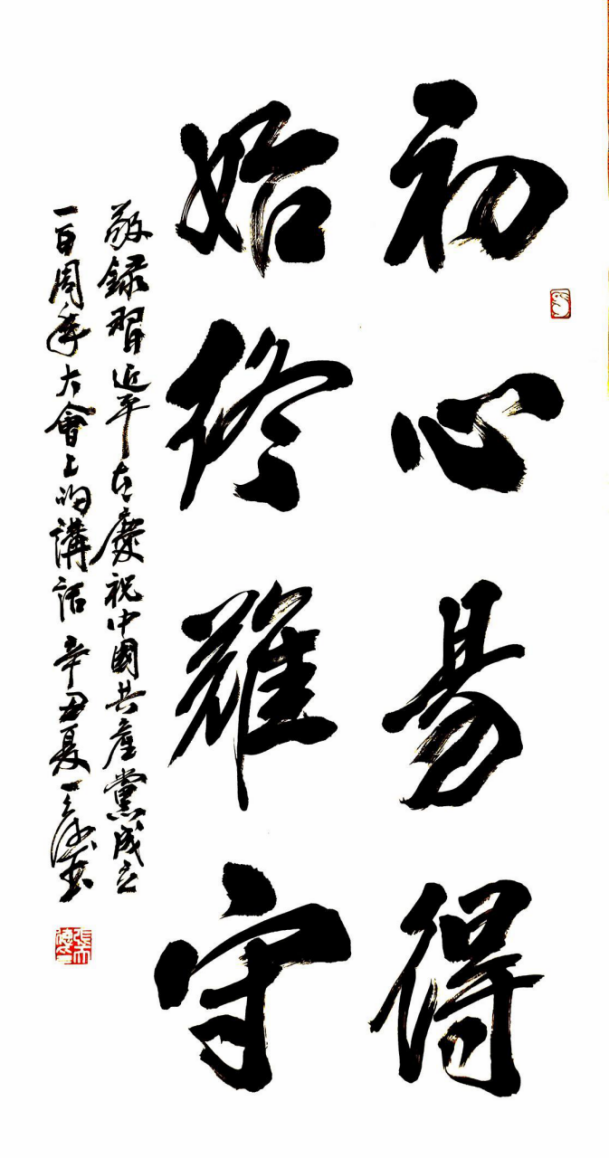 初心易得
始終難守
敬錄習近平在慶祝中國共產黨成立
一百周年大會上的講話 辛丑夏